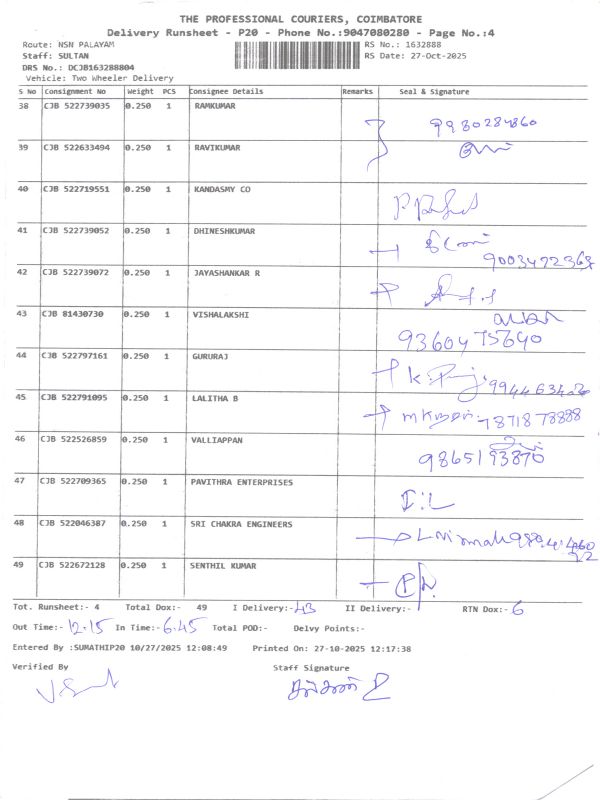 THE PROFESSIONAL COURIERS, COIMBATORE
Delivery Runsheet - P20 - Phone No.:9047080280 - Page No.:4
Route: NSN PALAYAM RS No.: 1632888
Staff: SULTAN RS Date: 27-Oct-2025
DRS No.: DCJB163288804
Vehicle: Two Wheeler Delivery
S No Consignment No Weight PCS Consignee Details Remarks Seal & Signature
38 CJB 522739035 0.250 1 RAMKUMAR
39 CJB 522633494 0.250 1 RAVIKUMAR
40 CJB 522719551 0.250 1 KANDASMY CO
41 CJB 522739052 0.250 1 DHINESHKUMAR
9003472363
42 CJB 522739072 0.250 1 JAYASHANKAR R
43 CJB 81430730 0.250 1 VISHALAKSHI
9360475640
44 CJB 522797161 0.250 1 GURURAJ
45 CJB 522791095 0.250 1 LALITHA B
7871878888
46 CJB 522526859 0.250 1 VALLIAPPAN
9865193870
47 CJB 522709365 0.250 1 PAVITHRA ENTERPRISES
48 CJB 522046387 0.250 1 SRI CHAKRA ENGINEERS
49 CJB 522672128 0.250 1 SENTHIL KUMAR
Tot. Runsheet:- 4 Total Dox:- 49 I Delivery:- 43 II Delivery:- RTN Dox:- 6
Out Time:- 12.15 In Time:- 6.45 Total POD:- Delvy Points:-
Entered By :SUMATHIP20 10/27/2025 12:08:49 Printed On: 27-10-2025 12:17:38
Verified By Staff Signature